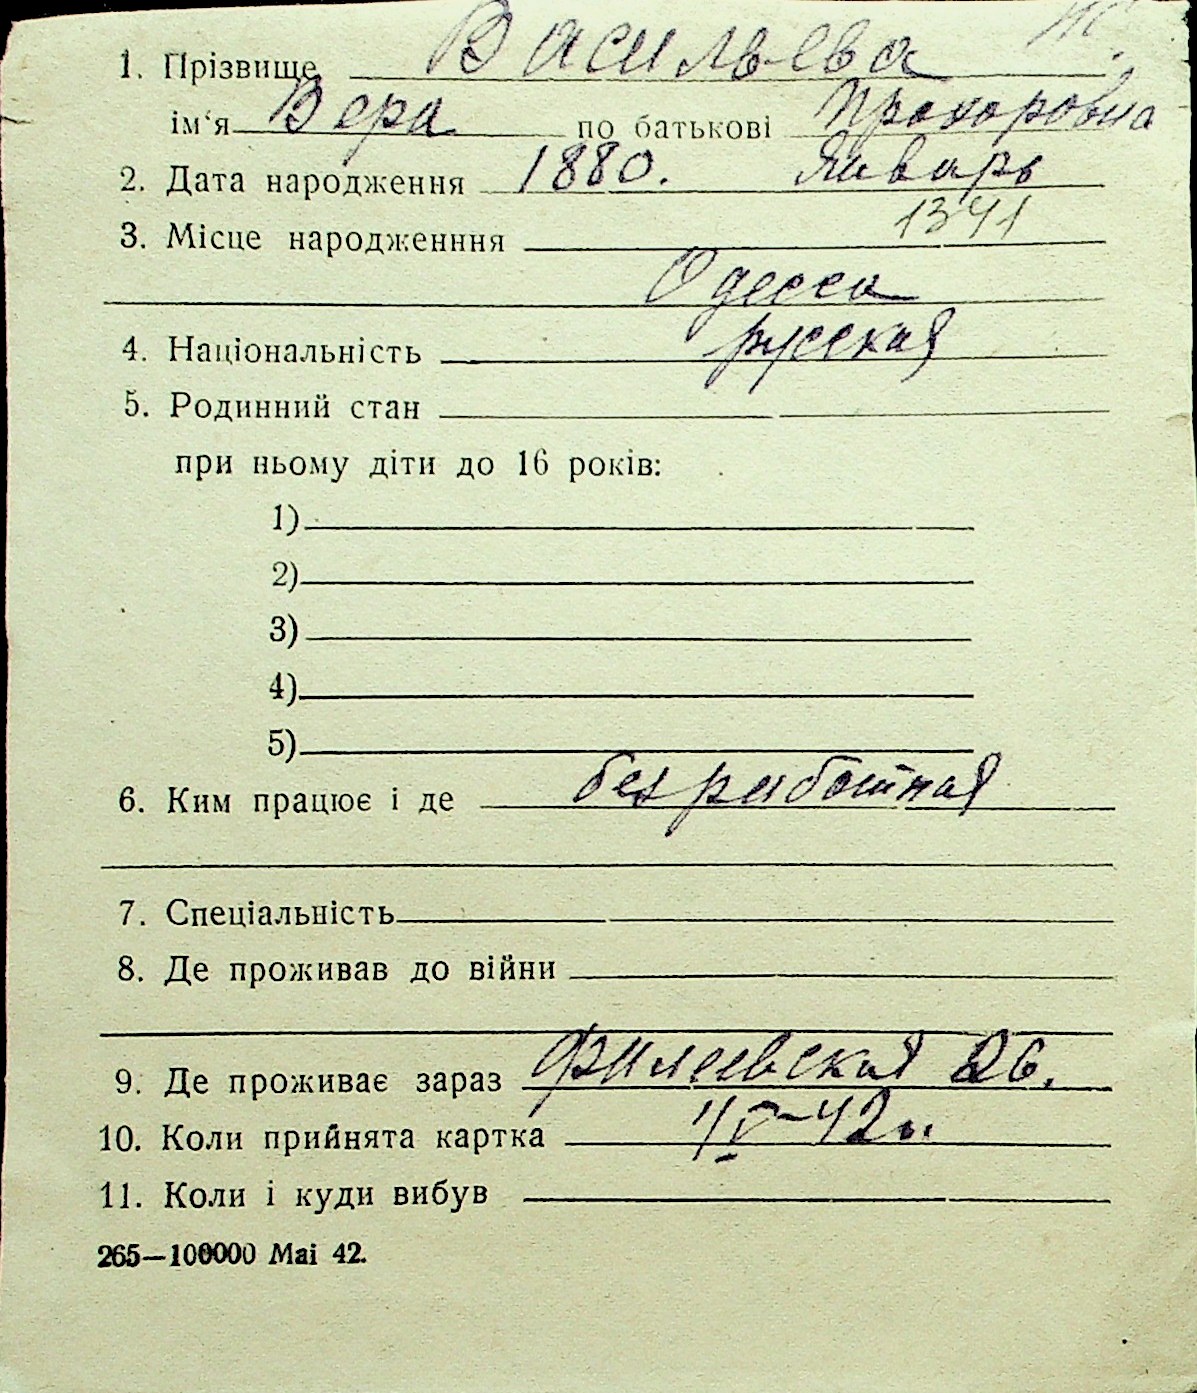 1. Прізвище Васильева
ім'я Вера по батькові Прохоровна
2. Дата народження 1880. Январь
3. Місце народженння 1341
Одесса
4. Національність русская
5. Родинний стан
при ньому діти до 16 років:
1)
2)
3)
4)
5)
6. Ким працює і де безработная
7. Спеціальність
8. Де проживав до війни
9. Де проживає зараз 26.
10. Коли прийнята картка
11. Коли і куди вибув
265—100000 Маі 42.